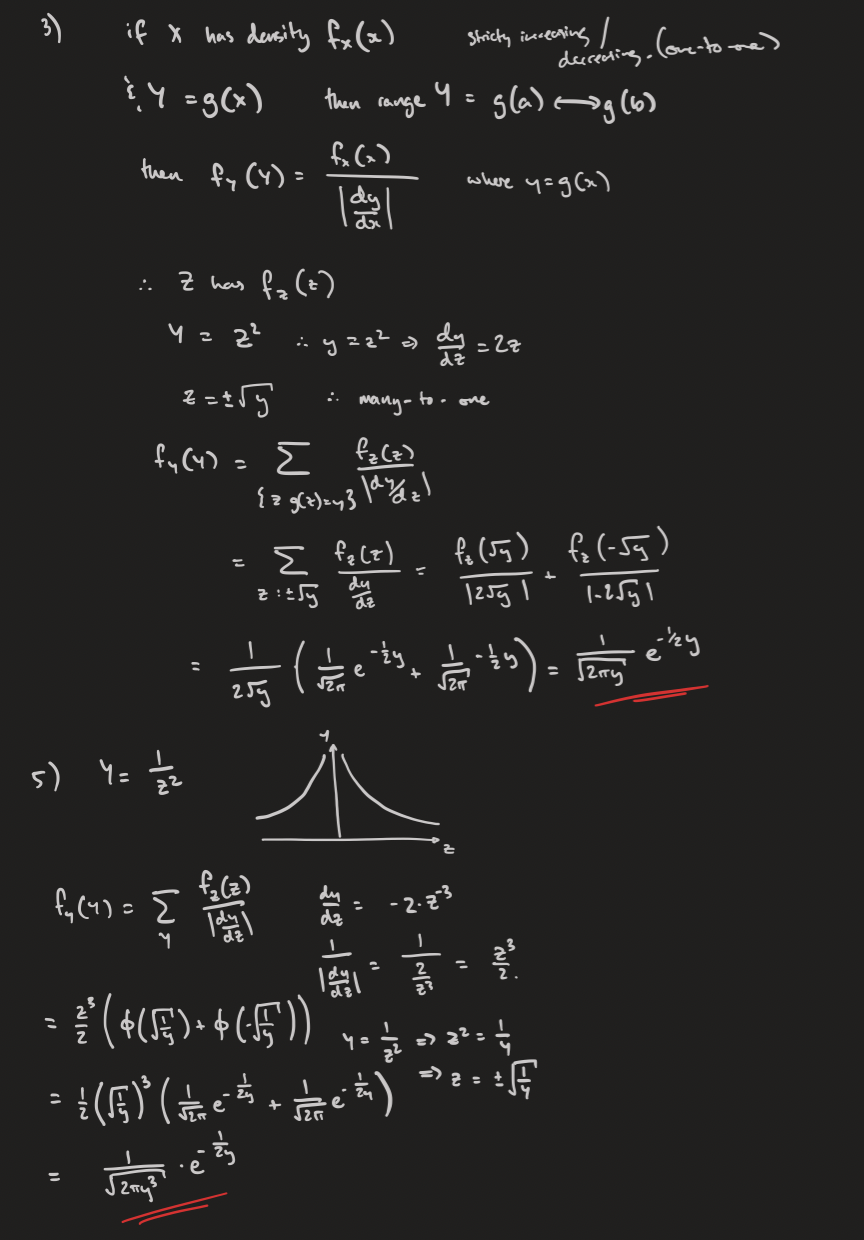 3) if X has density f_X(x) strictly increasing / decreasing. (one-to-one)
& Y = g(X) then range Y = g(a) ⟷ g(b)
then f_Y(Y) = f_X(x) / |dy/dx| where y = g(x)
∴ Z has f_Z(z)
Y = Z² ∴ y = z² ⇒ dy/dz = 2z
z = ±√y ∴ many-to-one
f_Y(Y) = Σ_{z g(z)=y} f_Z(z) / |dy/dz|
= Σ_{z:±√y} f_Z(z) / (dy/dz) = f_Z(√y) / |2√y| + f_Z(-√y) / |-2√y|
= 1/(2√y) ( 1/√2π e^{-½y} + 1/√2π ^{-½y} ) = 1/√(2πy) e^{-½y}
5) Y = 1/Z²
y
z
f_Y(Y) = Σ_Y f_Z(z) / |dy/dz| dy/dz = -2·z⁻³
1/|dy/dz| = 1/(2/z³) = z³/2.
= z³/2 ( ϕ(√(1/y)) + ϕ(-√(1/y)) ) Y = 1/z² ⇒ z² = 1/Y
= ½ (√(1/y))³ ( 1/√2π e^{-1/2y} + 1/√2π e^{-1/2y} ) ⇒ z = ±√(1/Y)
= 1/√(2πy³) · e^{-1/2y}